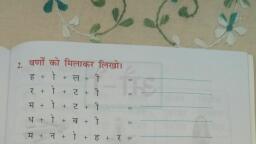 2. वर्णों को मिलाकर लिखो।
ह + ो + ल + ी =
र + ो + ट + ी =
म + ो + ट + ी =
ध + ो + ब + ी =
म + न + ो + ह + र =